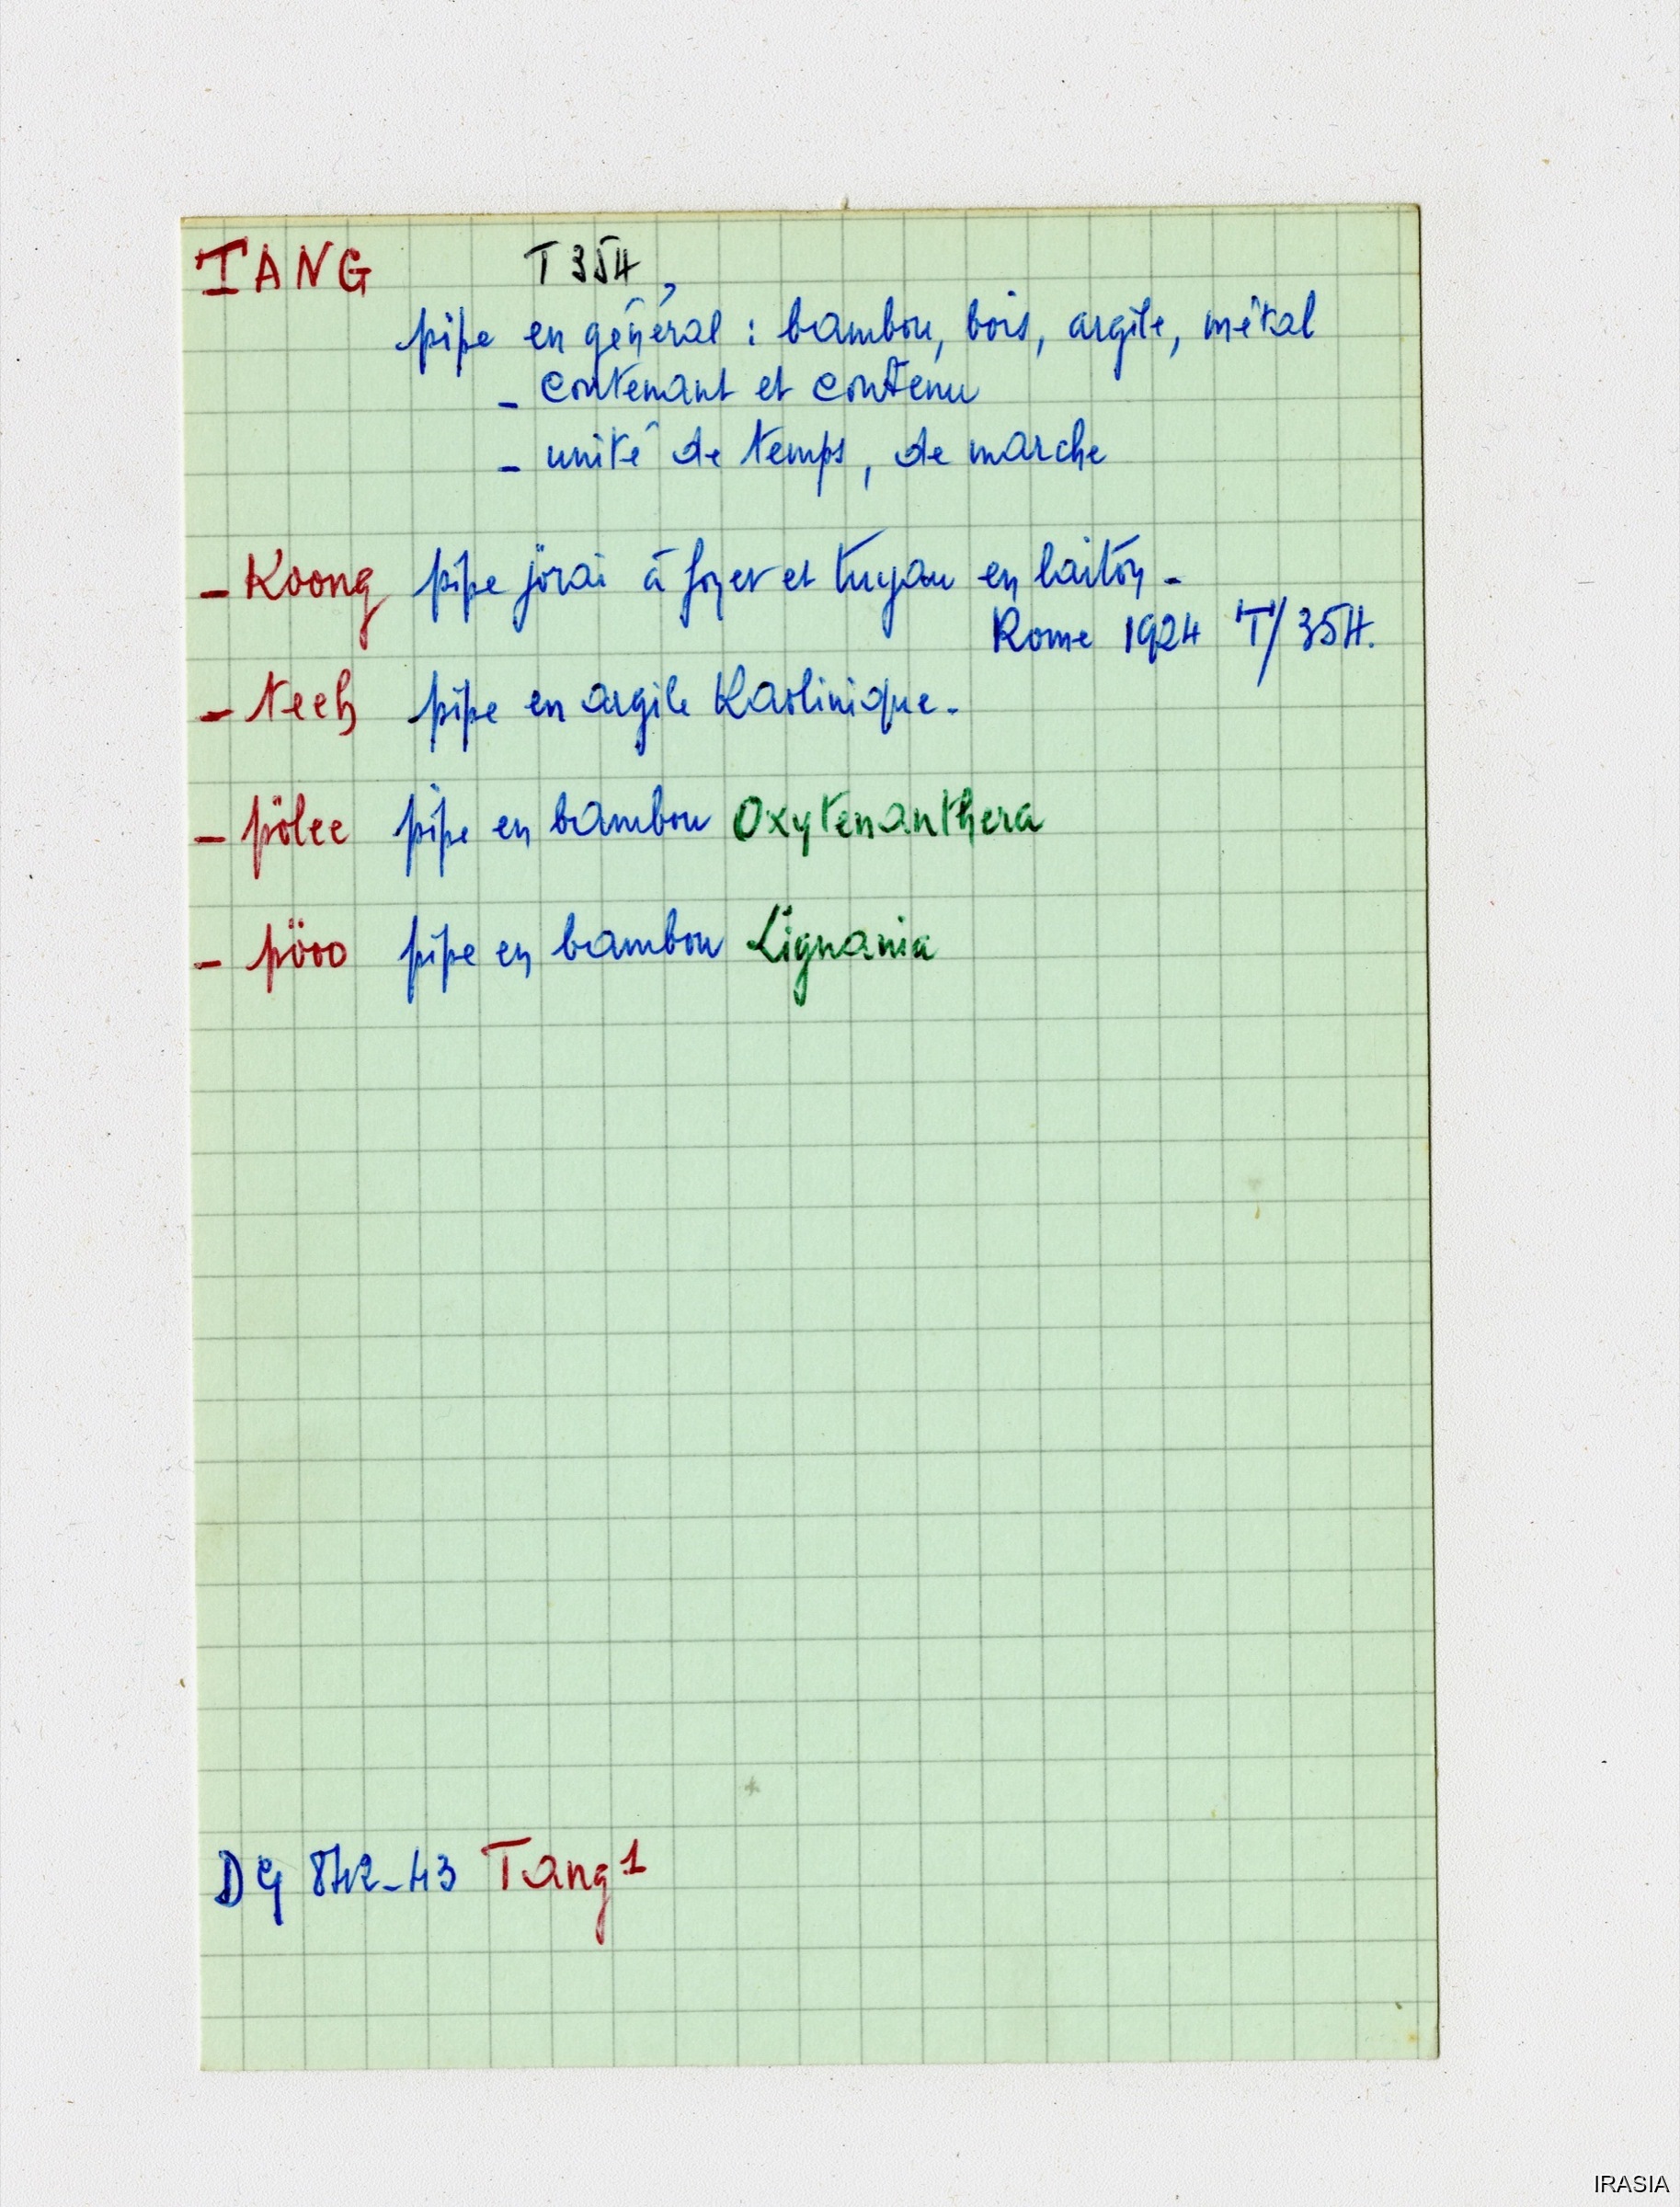 TANG T354
pipe en général : bambou, bois, argile, métal
- contenant et contenu
- unité de temps, de marche
- Koong pipe jörai à foyer et tuyau en laiton -
Rome 1924 T/354.
- teeh pipe en argile Kaolinique -
- pölee pipe en bambou Oxytenanthera
- pöoo pipe en bambou Lignania
DG 842-43 Tang 1
IRASIA